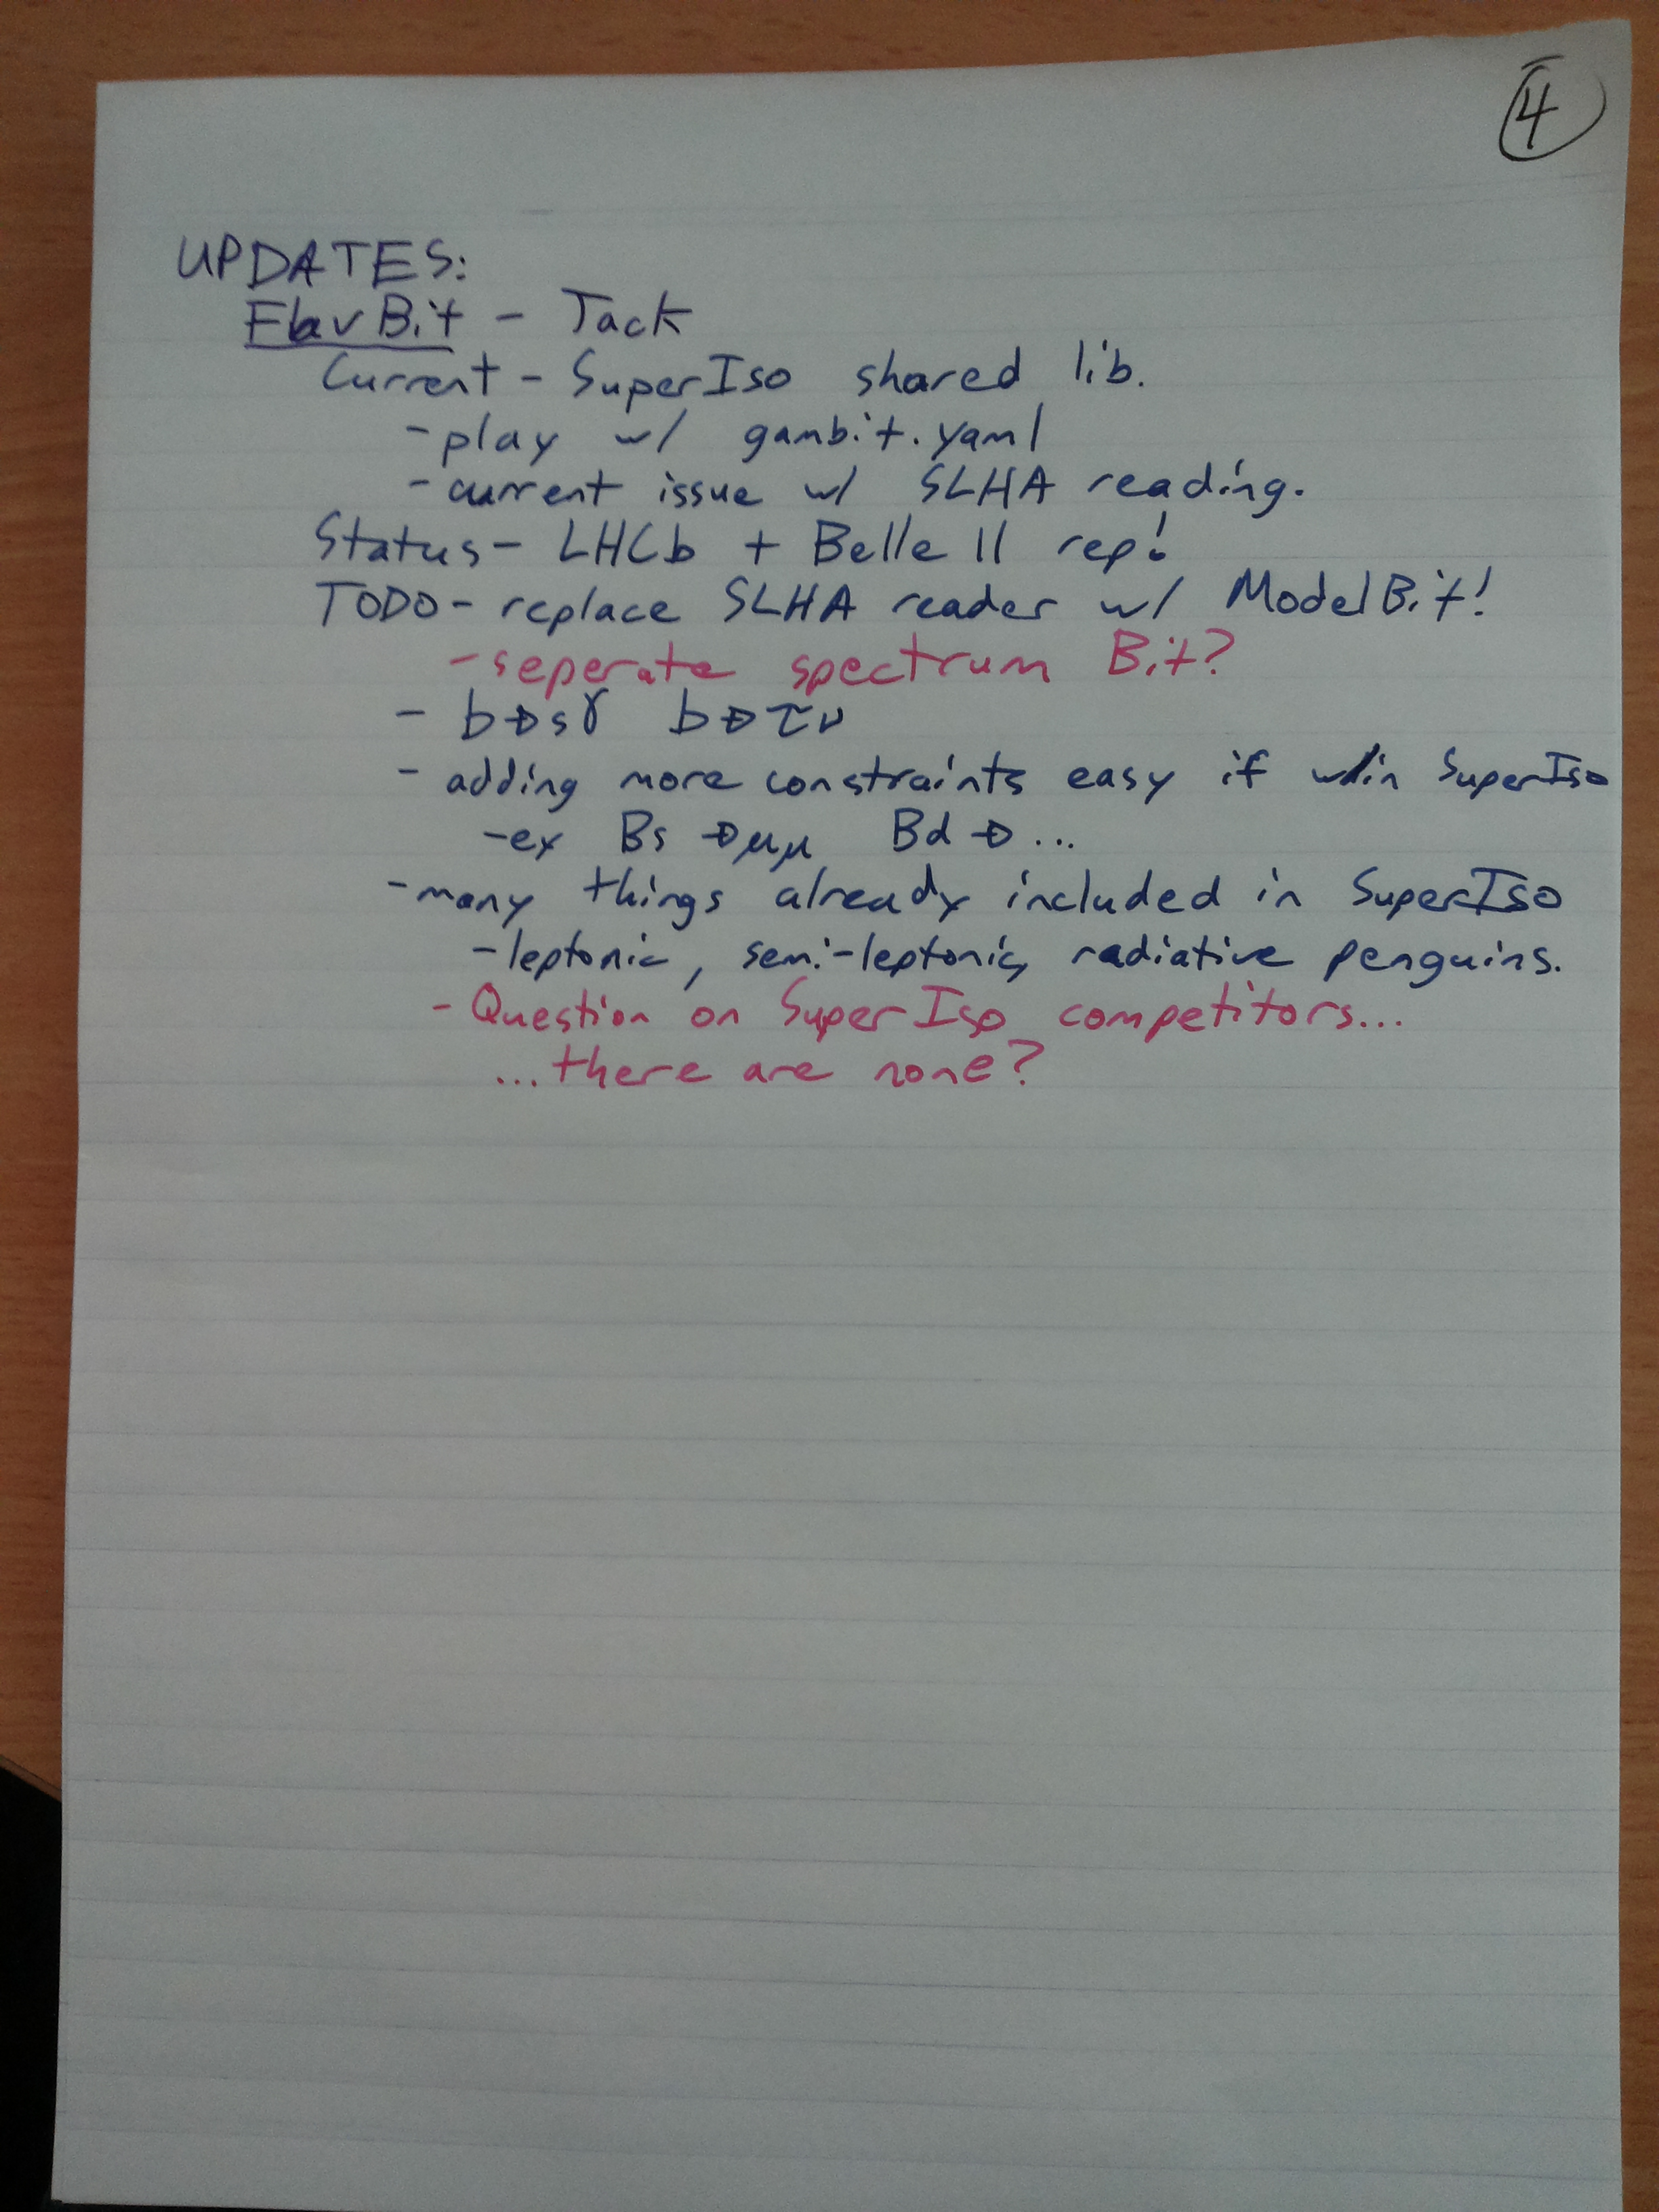 4
UPDATES:
FlavBit - Jack
Current - SuperIso shared lib.
- play w/ gambit.yaml
- current issue w/ SLHA reading.
Status - LHCb + Belle II rep!
TODO - replace SLHA reader w/ ModelBit!
- seperate spectrum Bit?
- b→sγ b→τν
- adding more constraints easy if w/in SuperIso
- ex Bs →μμ Bd → ...
- many things already included in SuperIso
- leptonic, semi-leptonic, radiative penguins.
- Question on SuperIso competitors...
...there are none?